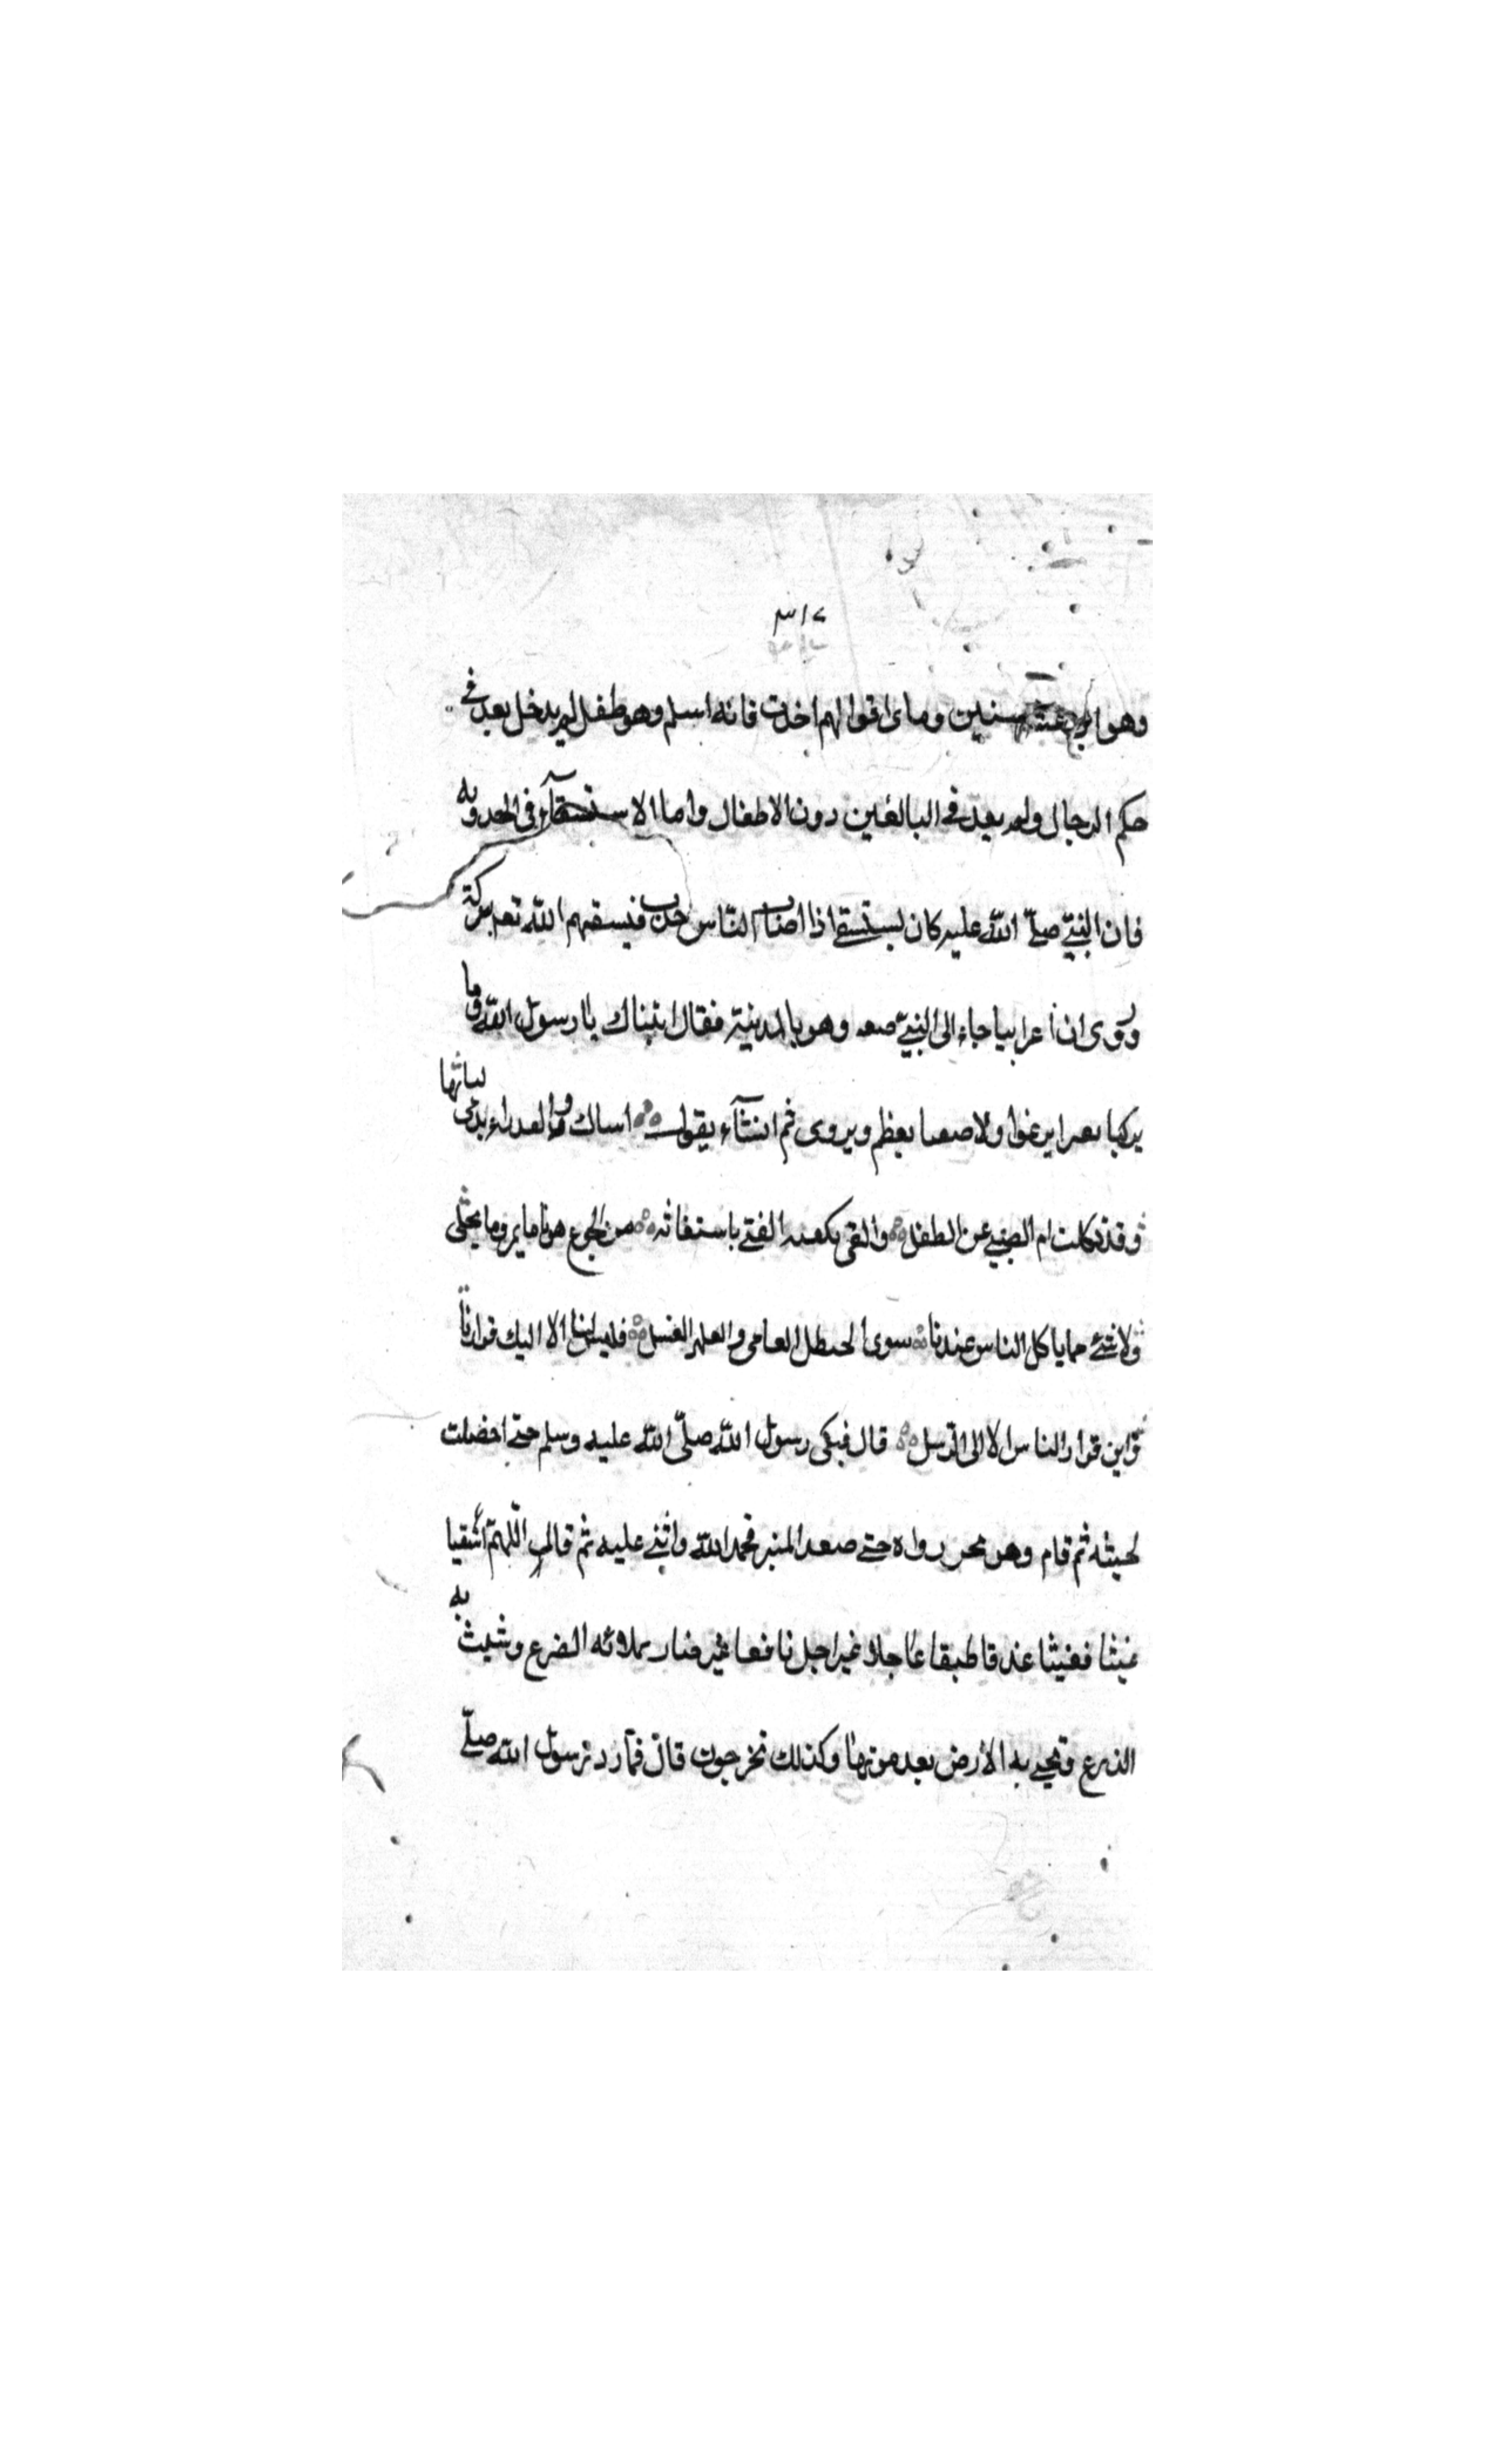 ٣١٧
وهو ابن سنين وماى اقوالهم اخذت فانه اسلم وهو طفل لم يدخل بعد فى
حكم الرجال ولم يعد فى البالغين دون الاطفال واما الاستسقآء فى الجدوبه
فان النبيّ صلّى اللّه عليه كان يستسقى اذا اصاب النّاس جدب فيسقيهم اللّه تعه ببركته
وروى ان أعرابيا جاء الى النبيّ صعه وهو بالمدينة فقال اتيناك يا رسول اللّه وما
يركبا بعير ايرغوا ولا يعظم ويروى ثم انشآء يقول اساك والعدراء يدمى لباتها
وقد ذكلت ام الصبى عن الطفل والقى بكفيه الفتى باستغاثه من الجوع هونا ما يمر وما يحلى
ولا شئ مما ياكل الناس عندنا سوى الحنطل العامى والعلهز الغسل فليس لنا الا اليك فرارنا
واين فرار الناس الا الى الرّسل قال فبكى رسول اللّه صلّى اللّه عليه وسلم حتى اخضلت
لحيته ثم قام وهو يجر رداه حتى صعد المنبر فحمد اللّه واثنى عليه ثم قال اللّهمّ اسقيا
غيثا مغيثا غدقا طبقا عاجلا غير اجل نافعا غير ضار يملا به الضرع وتنبت به
الزرع وتحيى به الأرض بعد موتها وكذلك تخرجون قال فما رد رسول اللّه صلّى